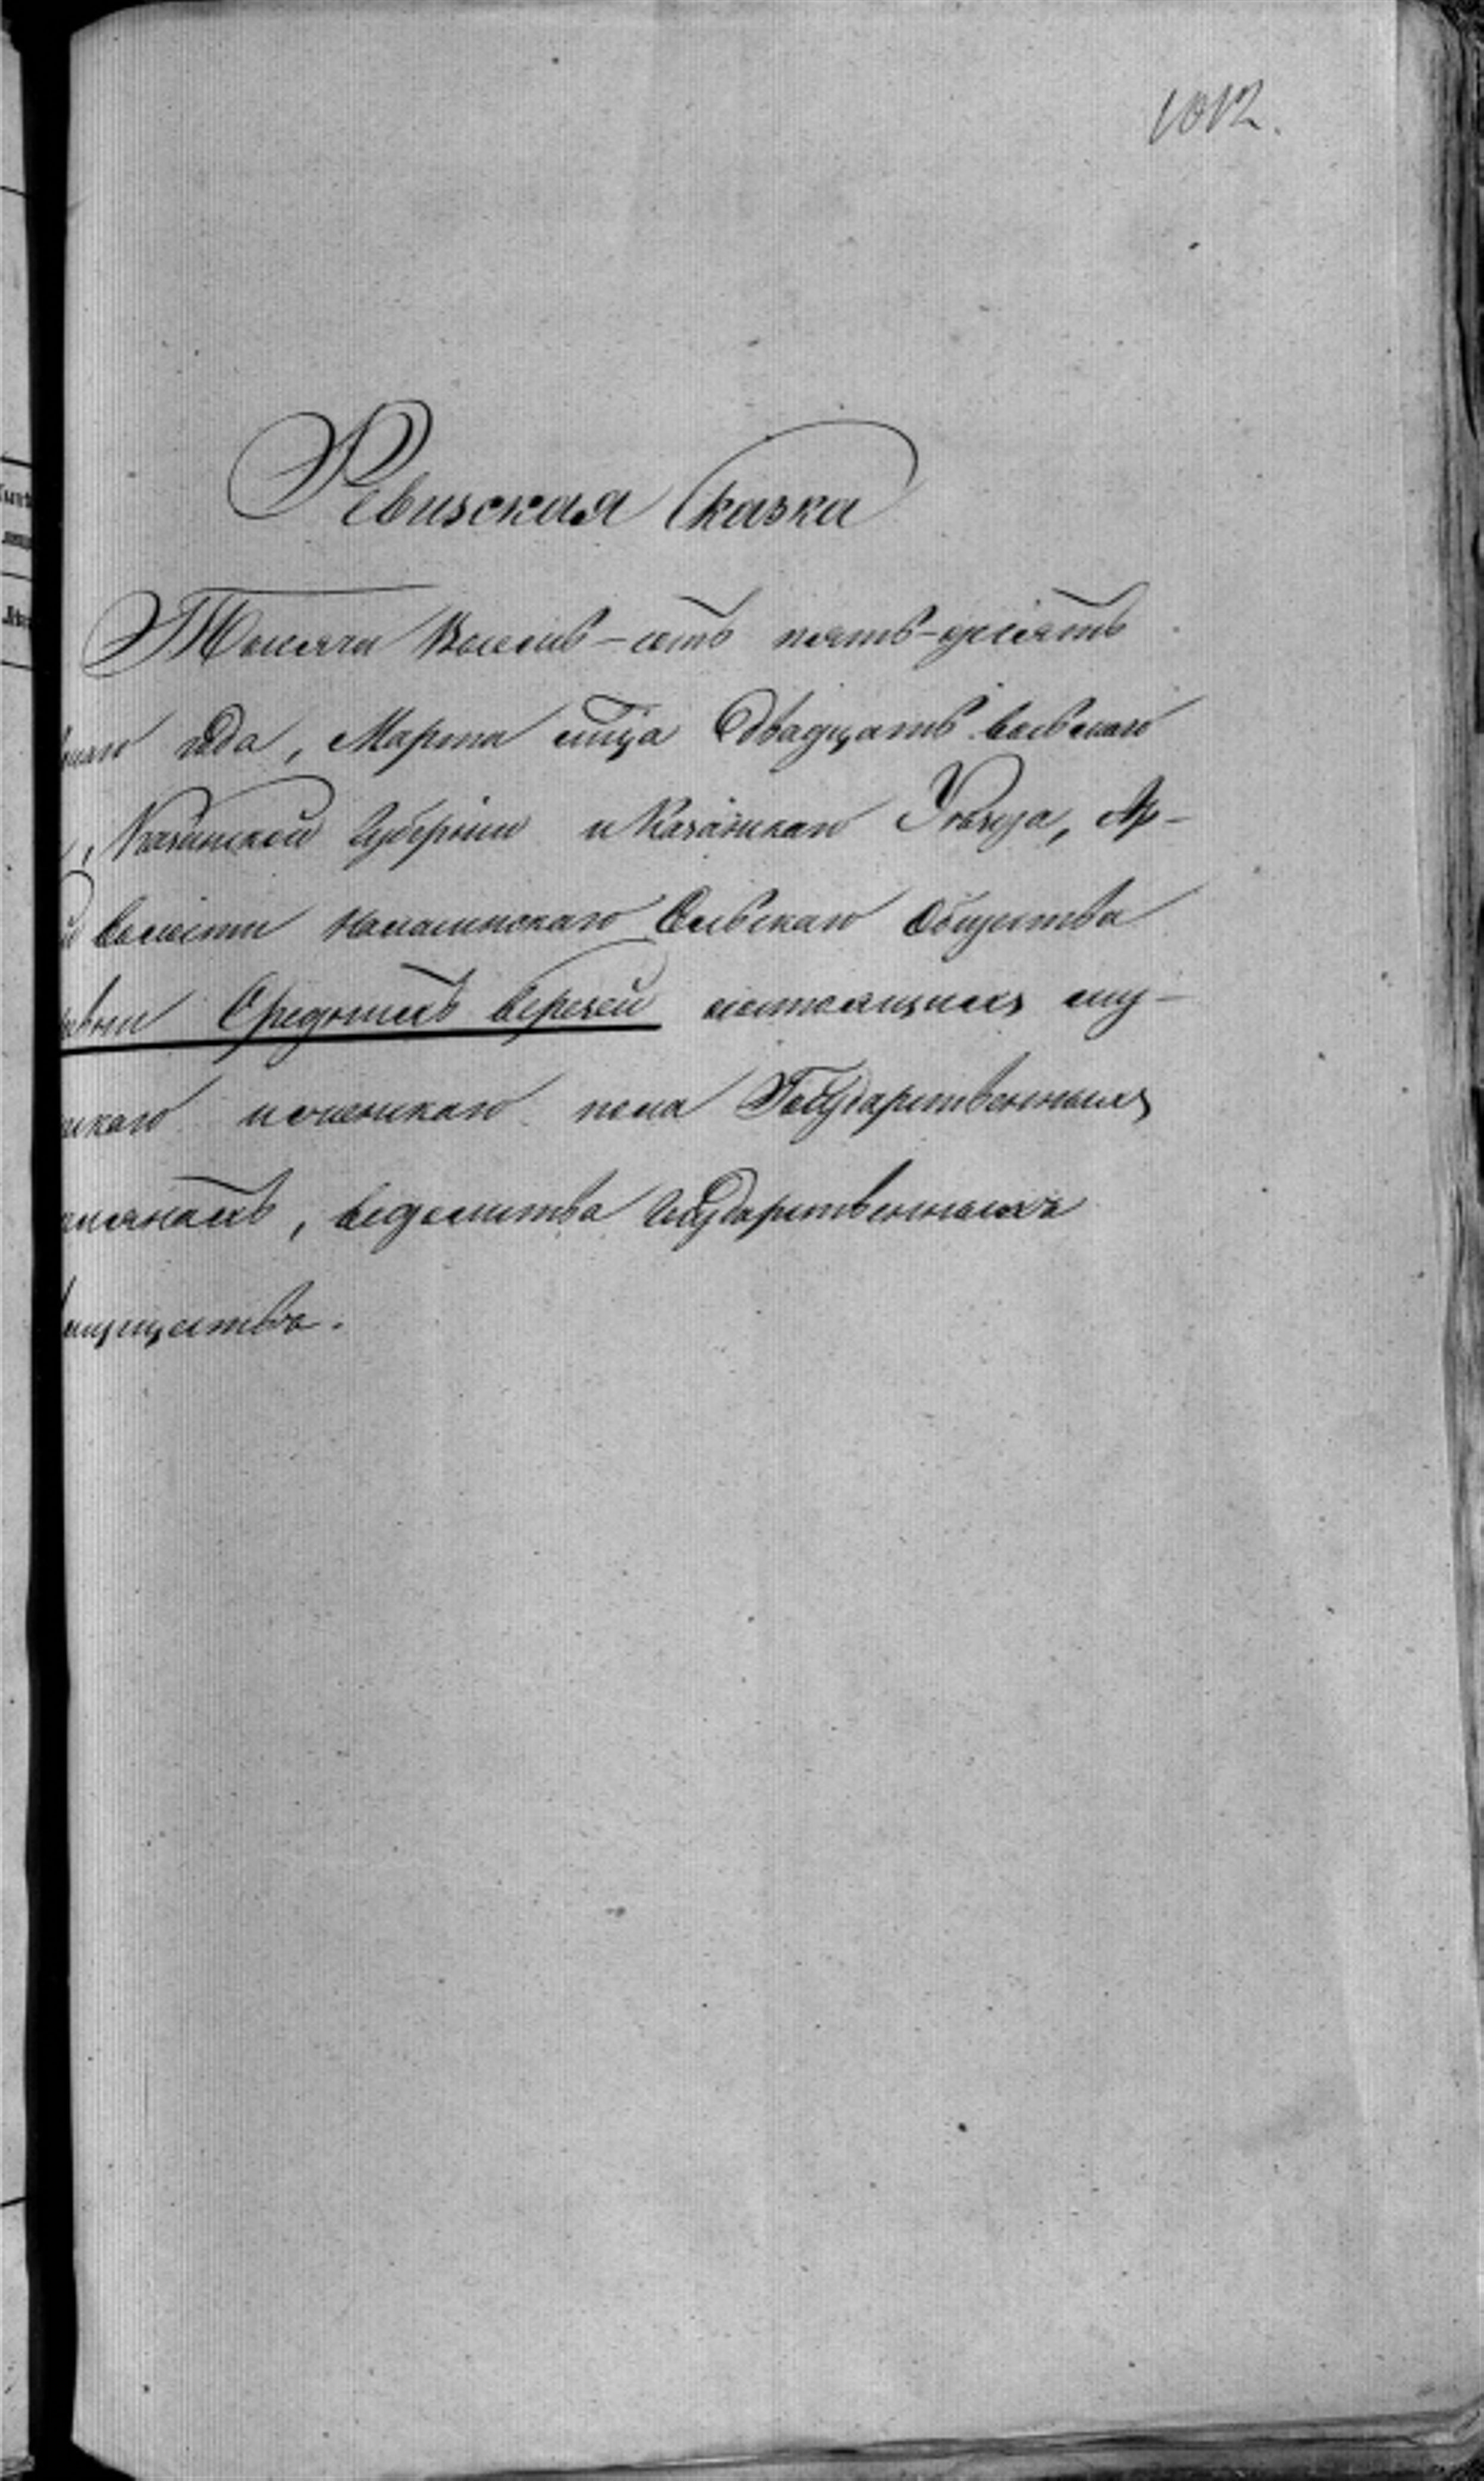 1012.
Ревизская Сказка
Тысяча Восемь-сотъ пять-десятъ
года, Марта мца Двадцать восьмаго
, Казанской Губерніи и Казанскаго Уѣзда, Ар-
волости Сельскаго Общества
Среднихъ Верезей состоящихъ му-
и женскаго пола Государственныхъ
, ведомства Государственныхъ
имуществъ.